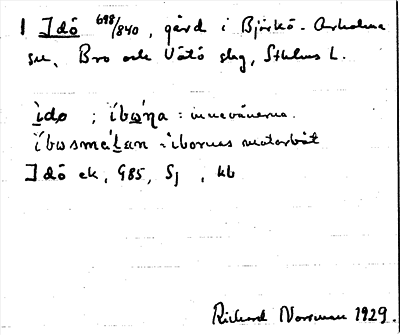 1 Idö 698/840, gård i Björkö-Arholma
sn, Bro och Vätö slg, Sthlms l.
ìdø ; íbωηa : innevånarna.
íbωsmeʹlan - ibornas motorbåt
Idö ek, G85, Sj , kb
Richard Norrman 1929.